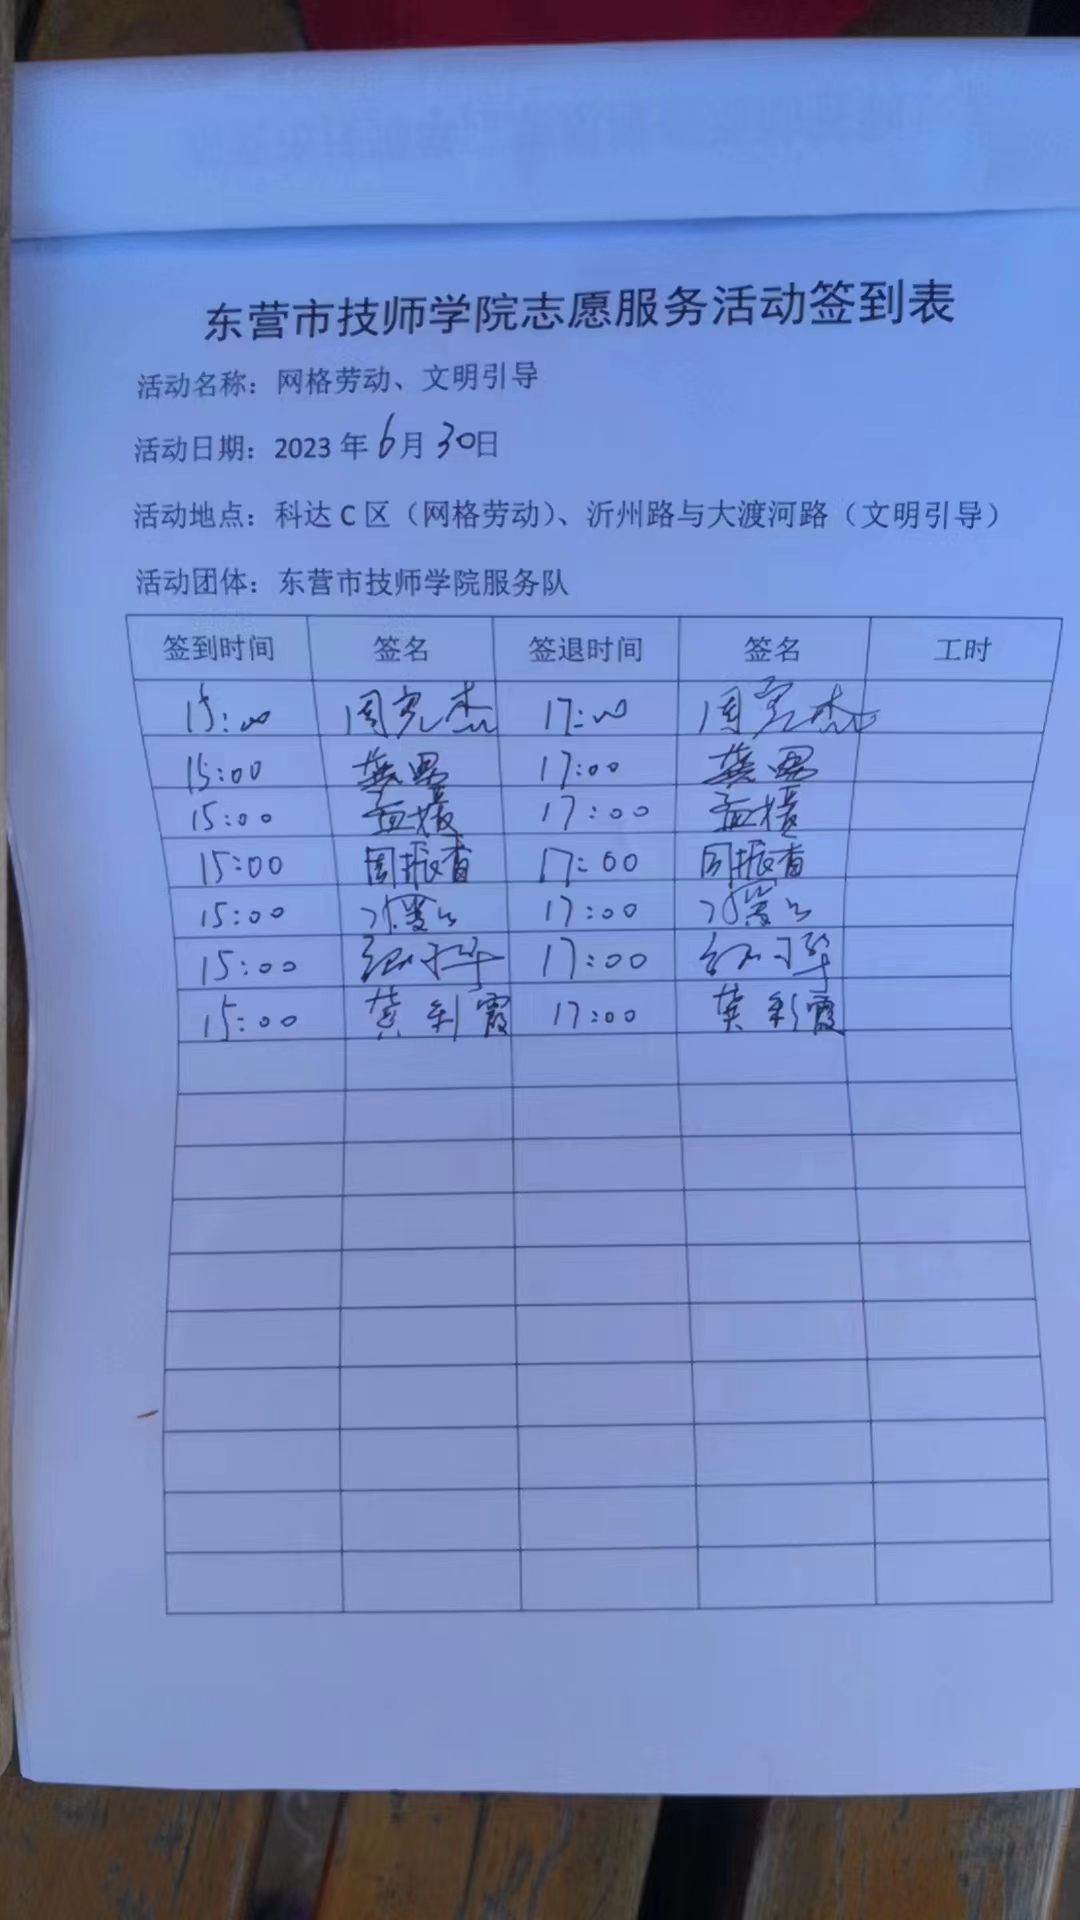 东营市技师学院志愿服务活动签到表
活动名称：网格劳动、文明引导
活动日期：2023 年 6 月 30 日
活动地点：科达 C 区（网格劳动）、沂州路与大渡河路（文明引导）
活动团体：东营市技师学院服务队
签到时间 签名 签退时间 签名 工时
15:00 周完杰 17:00 周完杰
15:00 17:00
15:00 17:00
15:00 周振香 17:00 周振香
15:00 17:00
15:00 17:00
15:00 黄彩霞 17:00 黄彩霞